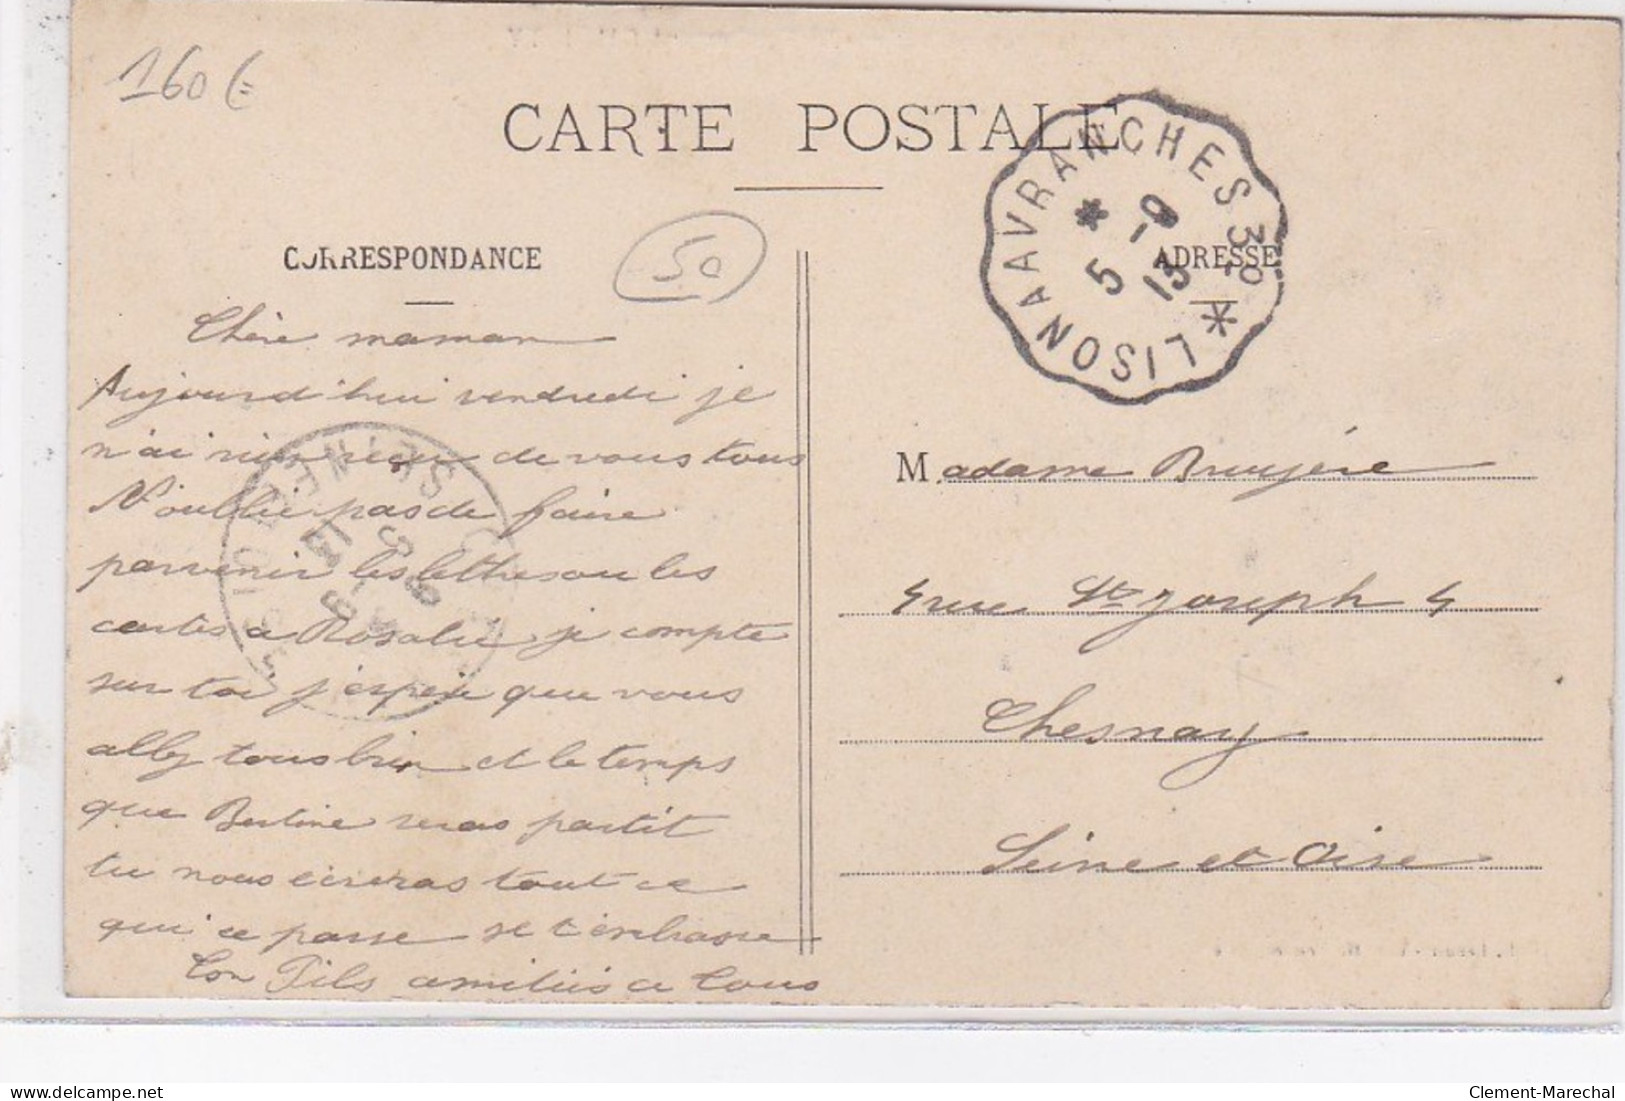 160 €
CARTE POSTALE
CORRESPONDANCE
50
ADRESSE
LISON A AVRANCHES 3º
5 -9
13
Chère maman
Aujourd'hui vendredi je
n'ai rien reçu de vous tous
N'oublie pas de faire
parvenir les lettres ou les
cartes a Rosalie je compte
sur toi j'espère que vous
allez tous bien et le temps
que Bertine seras partit
tu nous écriras tout ce
qui ce passe je t'embrasse
Ton Fils amitiés a tous
Madame Bruyère
4 rue St Joseph 4
Chesnay
Seine et Oise
SEINE ET OISE
Clement-Marechal
delcampe.net